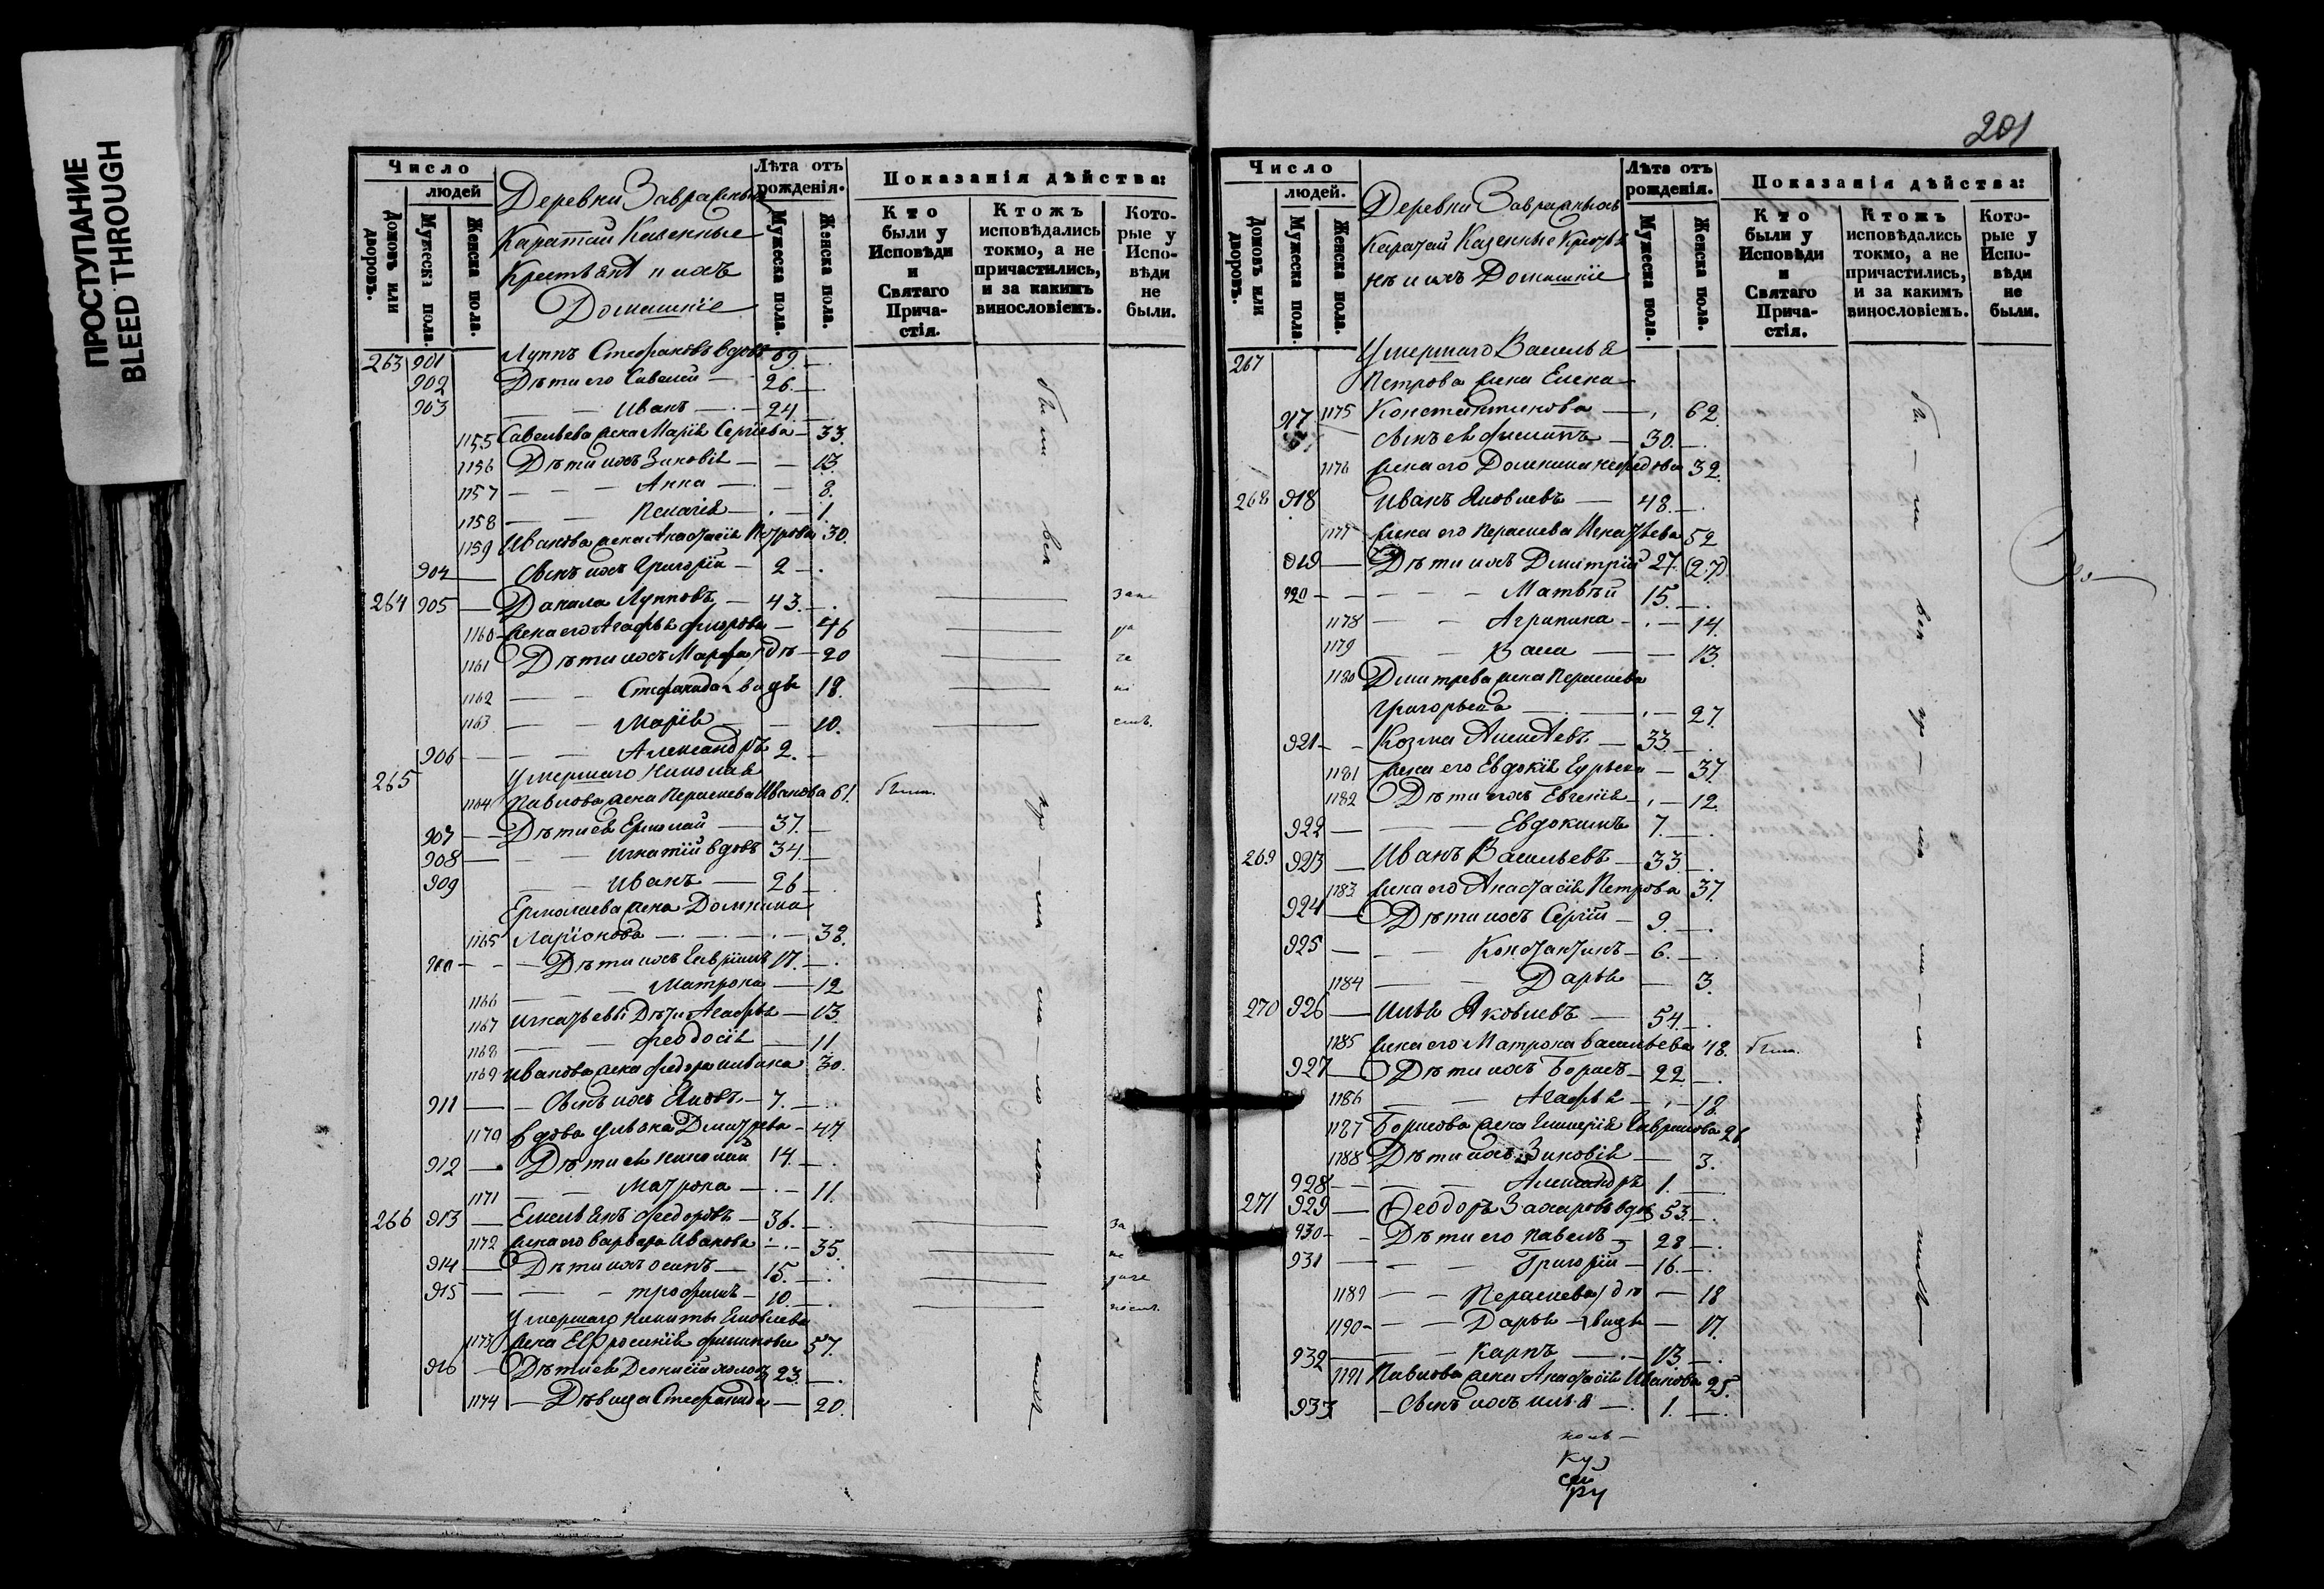 ПРОСТУПАНИЕ
BLEED THROUGH
Число
людей
Домовъ или дворовъ.
Мужеска пола.
Женска пола.
Деревни Завражныхъ
Каратай Казенные
Крестьянѣ и ихъ
Домашніе
Лѣта отъ рожденія.
Мужеска пола.
Женска пола.
Показанія дѣйства:
Кто были у Исповѣди и Святаго Прича-стія.
Ктожъ исповѣдались токмо, а не причастились, и за какимъ винословіемъ.
Кото-рые у Испо-вѣди не были.
263 901 Луппъ Стефановъ вдовъ 69.
902 Дѣти его Савелій 26.
903 Иванъ 24.
1155 Савельева жена Марія Сергіева 33.
1156 Дѣти ихъ Зиновія 13.
1157 Анна 8.
1158 Пелагія 1.
1159 Иванова жена Анастасія Петрова 30.
904 Сынъ ихъ Григорій 2.
264 905 Данила Лупповъ 43.
1160 жена его Агафья 46
1161 Дѣти ихъ Марфа дѣ 20
1162 Стефанида вицы 18.
1163 Марія 10.
906 Александръ 2.
265 Умершаго Николая
1164 Павлова жена Параскева Иванова 61. были.
907 Дѣти ея Ермолай 37.
908 Игнатій вдовъ 34.
909 Иванъ 26
Ермолаева жена Домнина
1165 Ларіонова 38.
910 Дѣти ихъ Гавріилъ 17.
1166 Матрона 12
1167 Игнатьевы Дѣти Агафья 13.
1168 Феодосія 11.
1169 Иванова жена Федора 30.
911 Сынъ ихъ Яковъ 7.
1170 Вдова Ульяна Дмитрева 47
912 Дѣти ея Николай 14.
1171 Матрона 11.
266 913 Емельянъ Федоровъ 36.
1172 жена его Варвара Иванова 35.
914 Дѣти ихъ Осипъ 15.
915 Трофимъ 10.
Умершаго Никиты Яковлева
1173 жена Евфросинія 57.
916 Дѣти ея Деонисій холостъ 23.
1174 Дѣвица Стефанида 20.
201
Число
людей.
Домовъ или дворовъ.
Мужеска пола.
Женска пола.
Деревни Завражныхъ
Каратай Казенные Крестья
нѣ и ихъ Домашніе
Лѣта отъ рожденія.
Мужеска пола.
Женска пола.
Показанія дѣйства:
Кто были у Исповѣди и Святаго Прича-стія.
Ктожъ исповѣдались токмо, а не причастились, и за какимъ винословіемъ.
Кото-рые у Испо-вѣди не были.
267 Умершаго Василья
Петрова жена Елена
1175 Константинова 62.
917 Сынъ ея Филиппъ 30.
1176 жена его Домнина 32.
268 918 Иванъ Яковлевъ 48.
1177 жена его Параскева Игнатьева 52
919 Дѣти ихъ Дмитрій 27. (27)
920 Матвѣй 15.
1178 Агрипина 14.
1179 13.
1180 Дмитрева жена Параскева
Григорьева 27.
921 Козма 33
1181 жена его Евдокія 37.
1182 Дѣти ихъ Евгенія 12.
922 Евдокимъ 7.
269 923 Иванъ Васильевъ 33.
1183 жена его Анастасія Петрова 37.
924 Дѣти ихъ Сергій 9.
925 Константинъ 6.
1184 Дарья 3.
270 926 Илья Яковлевъ 54.
1185 жена его Матрона Васильева 48. были.
927 Дѣти ихъ Борисъ 22.
1186 Агафья 18.
1187 Борисова жена Гаврилова 26
1188 Дѣти ихъ Зиновія 3.
928 Александръ 1.
271 929 Феодоръ Захаровъ вдовъ 53.
930 Дѣти его Павелъ 28
931 Григорій 16.
1189 Параскева дѣ 18
1190 Дарья вицы 17.
932 Карпъ 13.
1191 Павлова жена Анастасія Иванова 25.
933 Сынъ ихъ Илья 1.